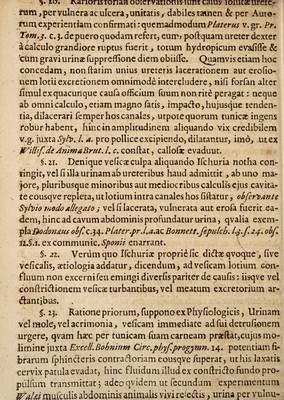 §. 20. Rarioris forian observationis sunt casus solutæ urete-
rum, per vulnera ac ulcera, unitatis, dabiles tamen & per Auto-
rum experientiam confirmati: quemadmodum Platerus v. gr. Pr.
Tom. 3. c. 3. de puero quodam refert, cum postquam ureter dexter
à calculo grandiore ruptus fuerit, totum hydropicum evasisse &
cum gravi urinæ suppressione diem obiisse. Quamvis etiam hoc
concedam, non statim unius ureteris lacerationem aut erosio-
nem lotii excretionem omnimodè intercludere, nisi forsan alter
simul ex quacunque causa officium suum non ritè peragat: neque
ab omni calculo, etiam magno satis, impacto, hujusque tenden-
tia, dilacerari semper hos canales, utpote quorum tunicæ ingens
robur habent, hinc in amplitudinem aliquando vix credibilem
v. g. juxta Sylv. l. a. pro pollice excipiendo, dilatantur, imò, ut ex
Willis. de Anima Brut. l. c. constat, callosæ evadunt.
§. 21. Denique vesicæ culpa aliquando Ischuria notha con-
tingit, vel si illa urinam ab ureteribus haud admittit, ab uno ma-
jore, pluribusque minoribus aut mediocribus calculis ejus cavita-
te eousque repleta, ut lotium intra canales hos sistatur, observante
Sylvio modo allegato; vel si lacerata, vulnerata aut erosa fuerit ea-
dem, hinc ad cavum abdominis profundatur urina, qvalia exem-
pla Dodonæus obs. c. 34. Plater. pr. l. a. ac Bonnett. sepulch. l. 3. s. 24. obs.
12. §. 1. ex communic. Sponii enarrant.
§. 22. Verùm quo Ischuriæ propriè sic dictæ qvoque, sive
vesicalis, ætiologia addatur, dicendum, ad vesicam lotium con-
fluum non excerni seu emingi diversis pariter de causis: iisqve vel
constrictionem vesicæ turbantibus, vel meatum excretorium ar-
ctantibus.
§. 23. Ratione priorum, suppono ex Physiologicis, Urinam
vel mole, vel acrimonia, vesicam immediatè ad sui detrusionem
urgere, quam hæc per tunicam suam carneam præstat, cujus mo-
limine juxta Excell. Bohnium Circ. phys. progymn. 14. potentiam fi-
brarum sphincteris contractoriam eousqve superat, ut his laxatis
cervix patula evadat, hinc fluidum illud ex constricto fundo pro-
pulsum transmittat; adeo qvidem ut secundum experimentum
Walæi musculis abdominis animalis vivi rejectis, urina per vulnu-